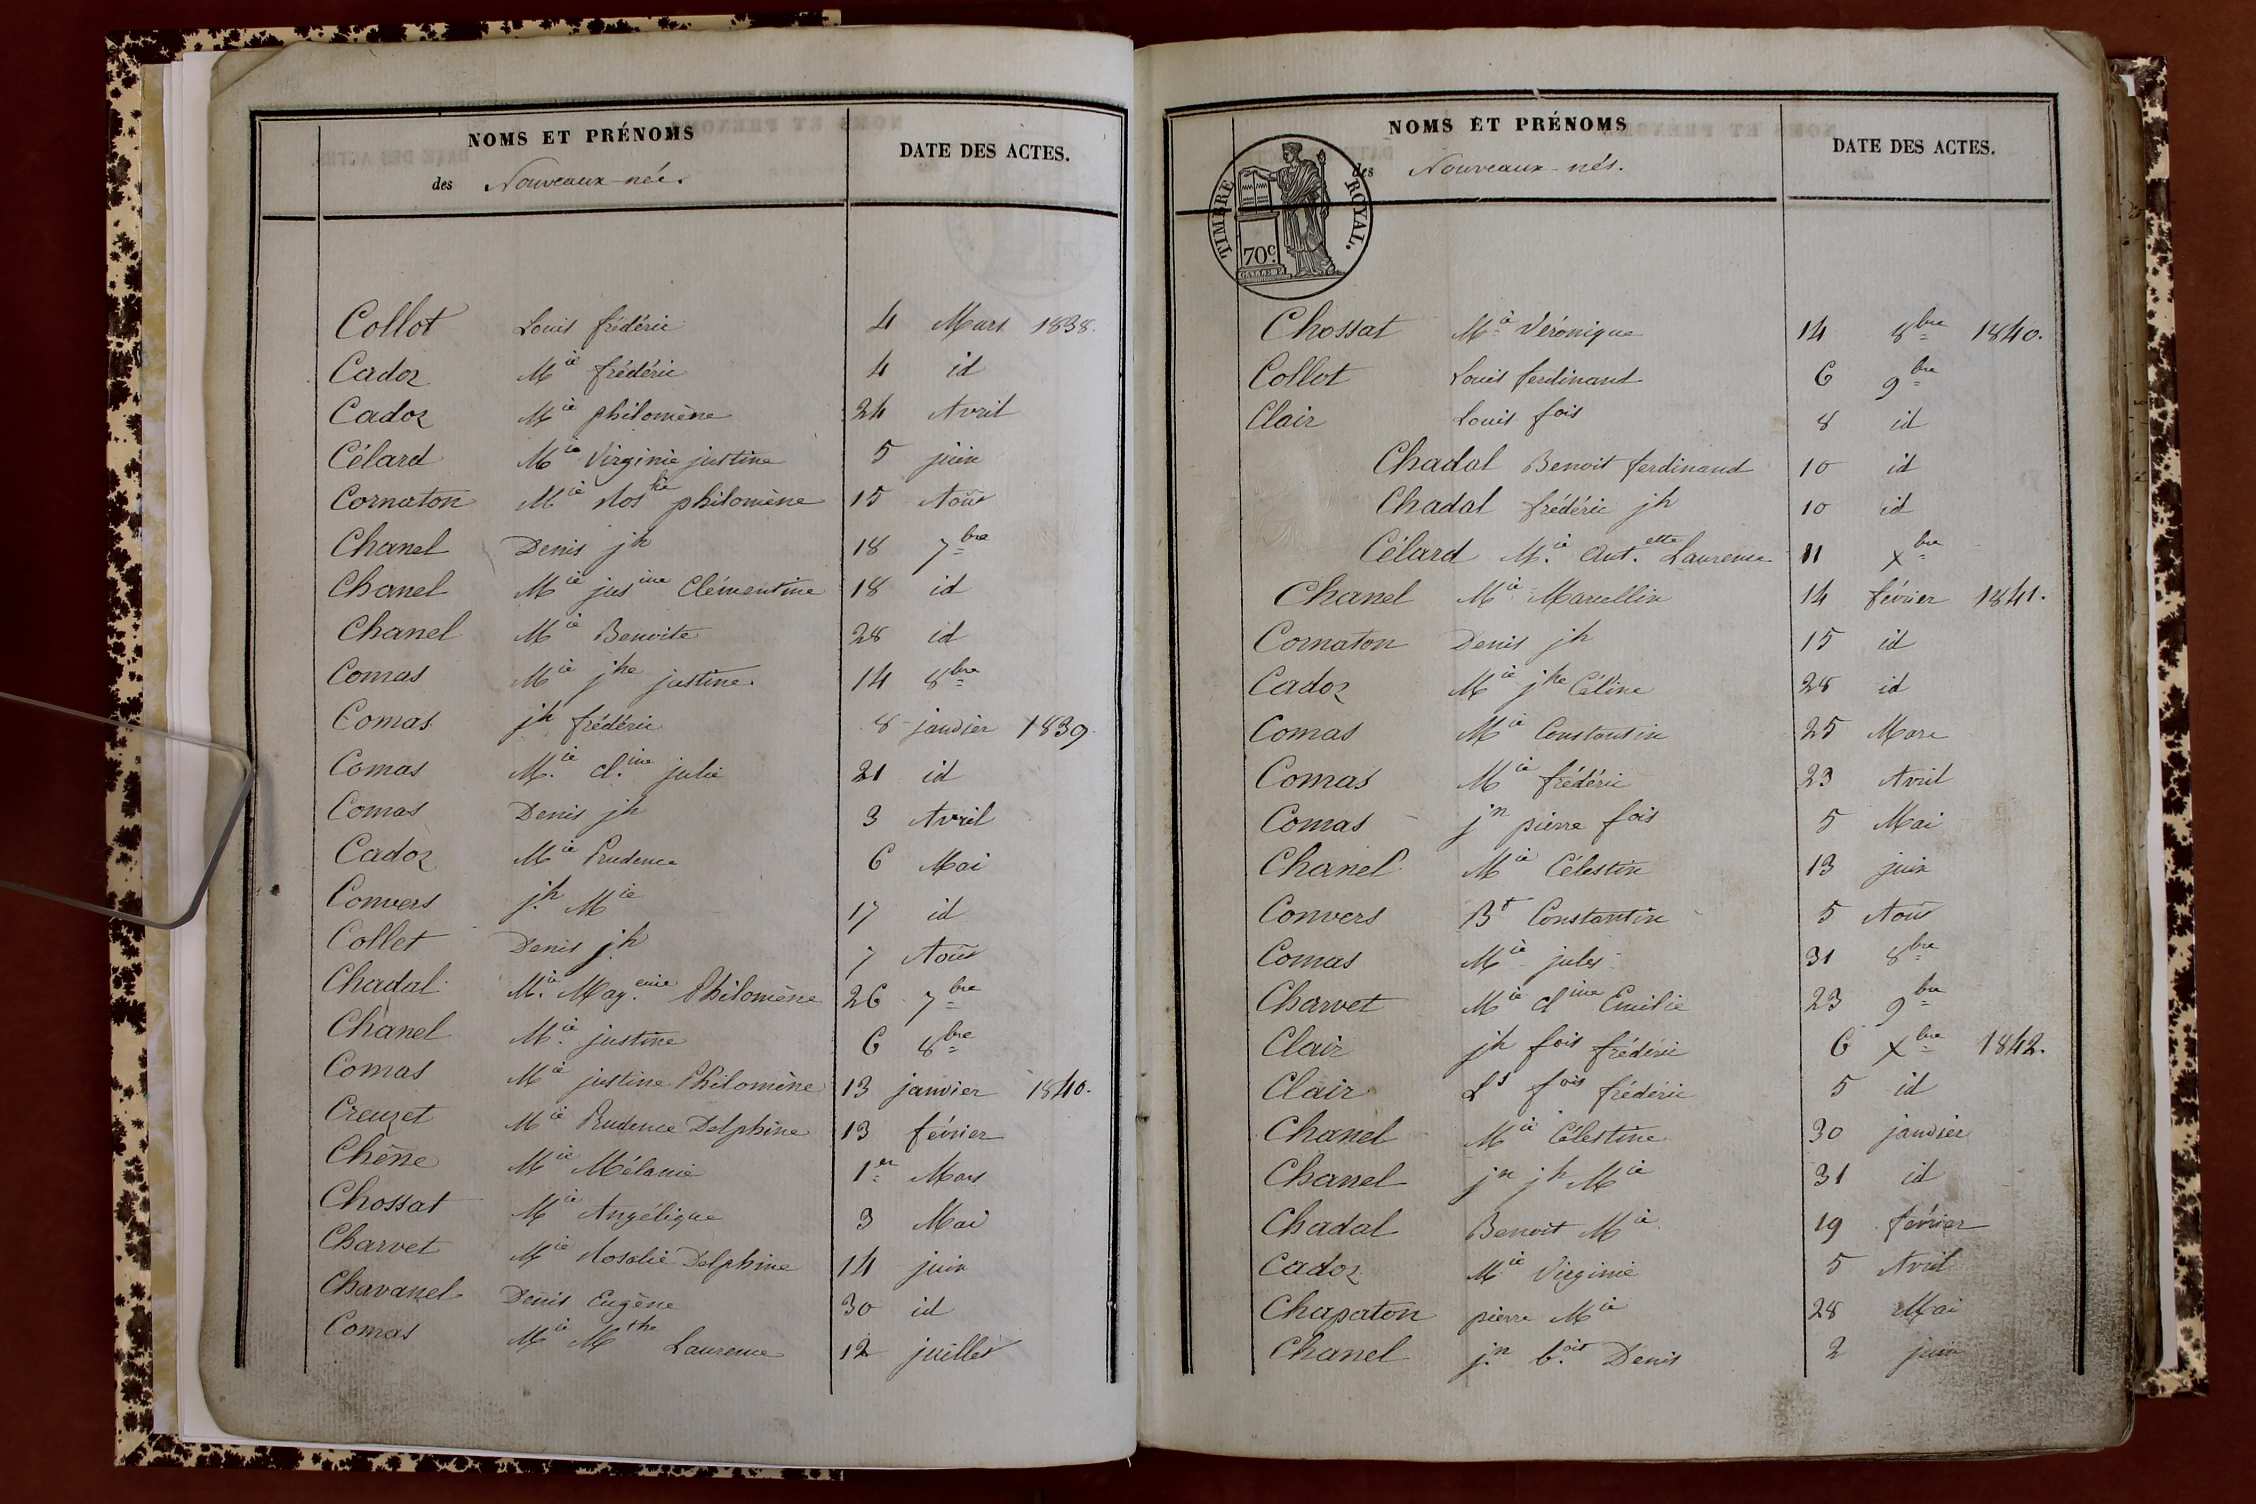 NOMS ET PRÉNOMS
des Nouveaux-nés.
DATE DES ACTES.
Collot Louis frédéric 4 Mars 1838.
Cadoz Mie frédéric 4 id
Cadoz Mie philomène 24 Avril
Célard Mie Virginie justine 5 juin
Cornaton Mie Roslie philomène 15 Août
Chanel Denis jh 18 7bre
Chanel Mie jusine Clémentine 18 id
Chanel Mie Benoite 28 id
Comas Mie jhe justine 14 8bre
Comas jh frédéric 8 janvier 1839
Comas Mie cl.ine julie 21 id
Comas Denis jh 3 Avril
Cadoz Mie Prudence 6 Mai
Convers jh Mie 17 id
Collet Denis jh 7 Août
Chadal Mie Mag.enie Philomène 26 7bre
Chanel Mie justine 6 8bre
Comas Mie justine Philomène 13 janvier 1840.
Creuzet Mie Prudence Delphine 13 février
Chêne Mie Mélanie 1er Mars
Chossat Mie Angélique 3 Mai
Charvet Mie Rosalie Delphine 14 juin
Chavanel Denis Eugène 30 id
Comas Mie Mthe Laurence 12 juillet
NOMS ET PRÉNOMS
des Nouveaux-nés.
DATE DES ACTES.
TIMBRE ROYAL.
70c.
Chossat Mie Véronique 14 8bre 1840.
Collot Louis ferdinand 6 9bre
Clair Louis fois 8 id
Chadal Benoit ferdinand 10 id
Chadal frédéric jh 10 id
Célard Mie Ant.ette Laurence 11 xbre
Chanel Mie Marcellin 14 février 1841.
Cornaton Denis jh 15 id
Cadoz Mie jhe Céline 28 id
Comas Mie Constantin 25 Mars
Comas Mie frédéric 23 Avril
Comas jn pierre fois 5 Mai
Chanel Mie Célestin 13 juin
Convers Bt Constantin 5 Août
Comas Mie jules 31 8bre
Charvet Mie cline Emilie 23 9bre
Clair jh fois frédéric 6 xbre 1842.
Clair Ls fois frédéric 5 id
Chanel Mie Célestine 30 janvier
Chanel jn jh Mie 31 id
Chadal Benoit Mie 19 février
Cadoz Mie Virginie 5 Avril
Chapaton pierre Mie 28 Mai
Chanel jn b.oit Denis 2 juin